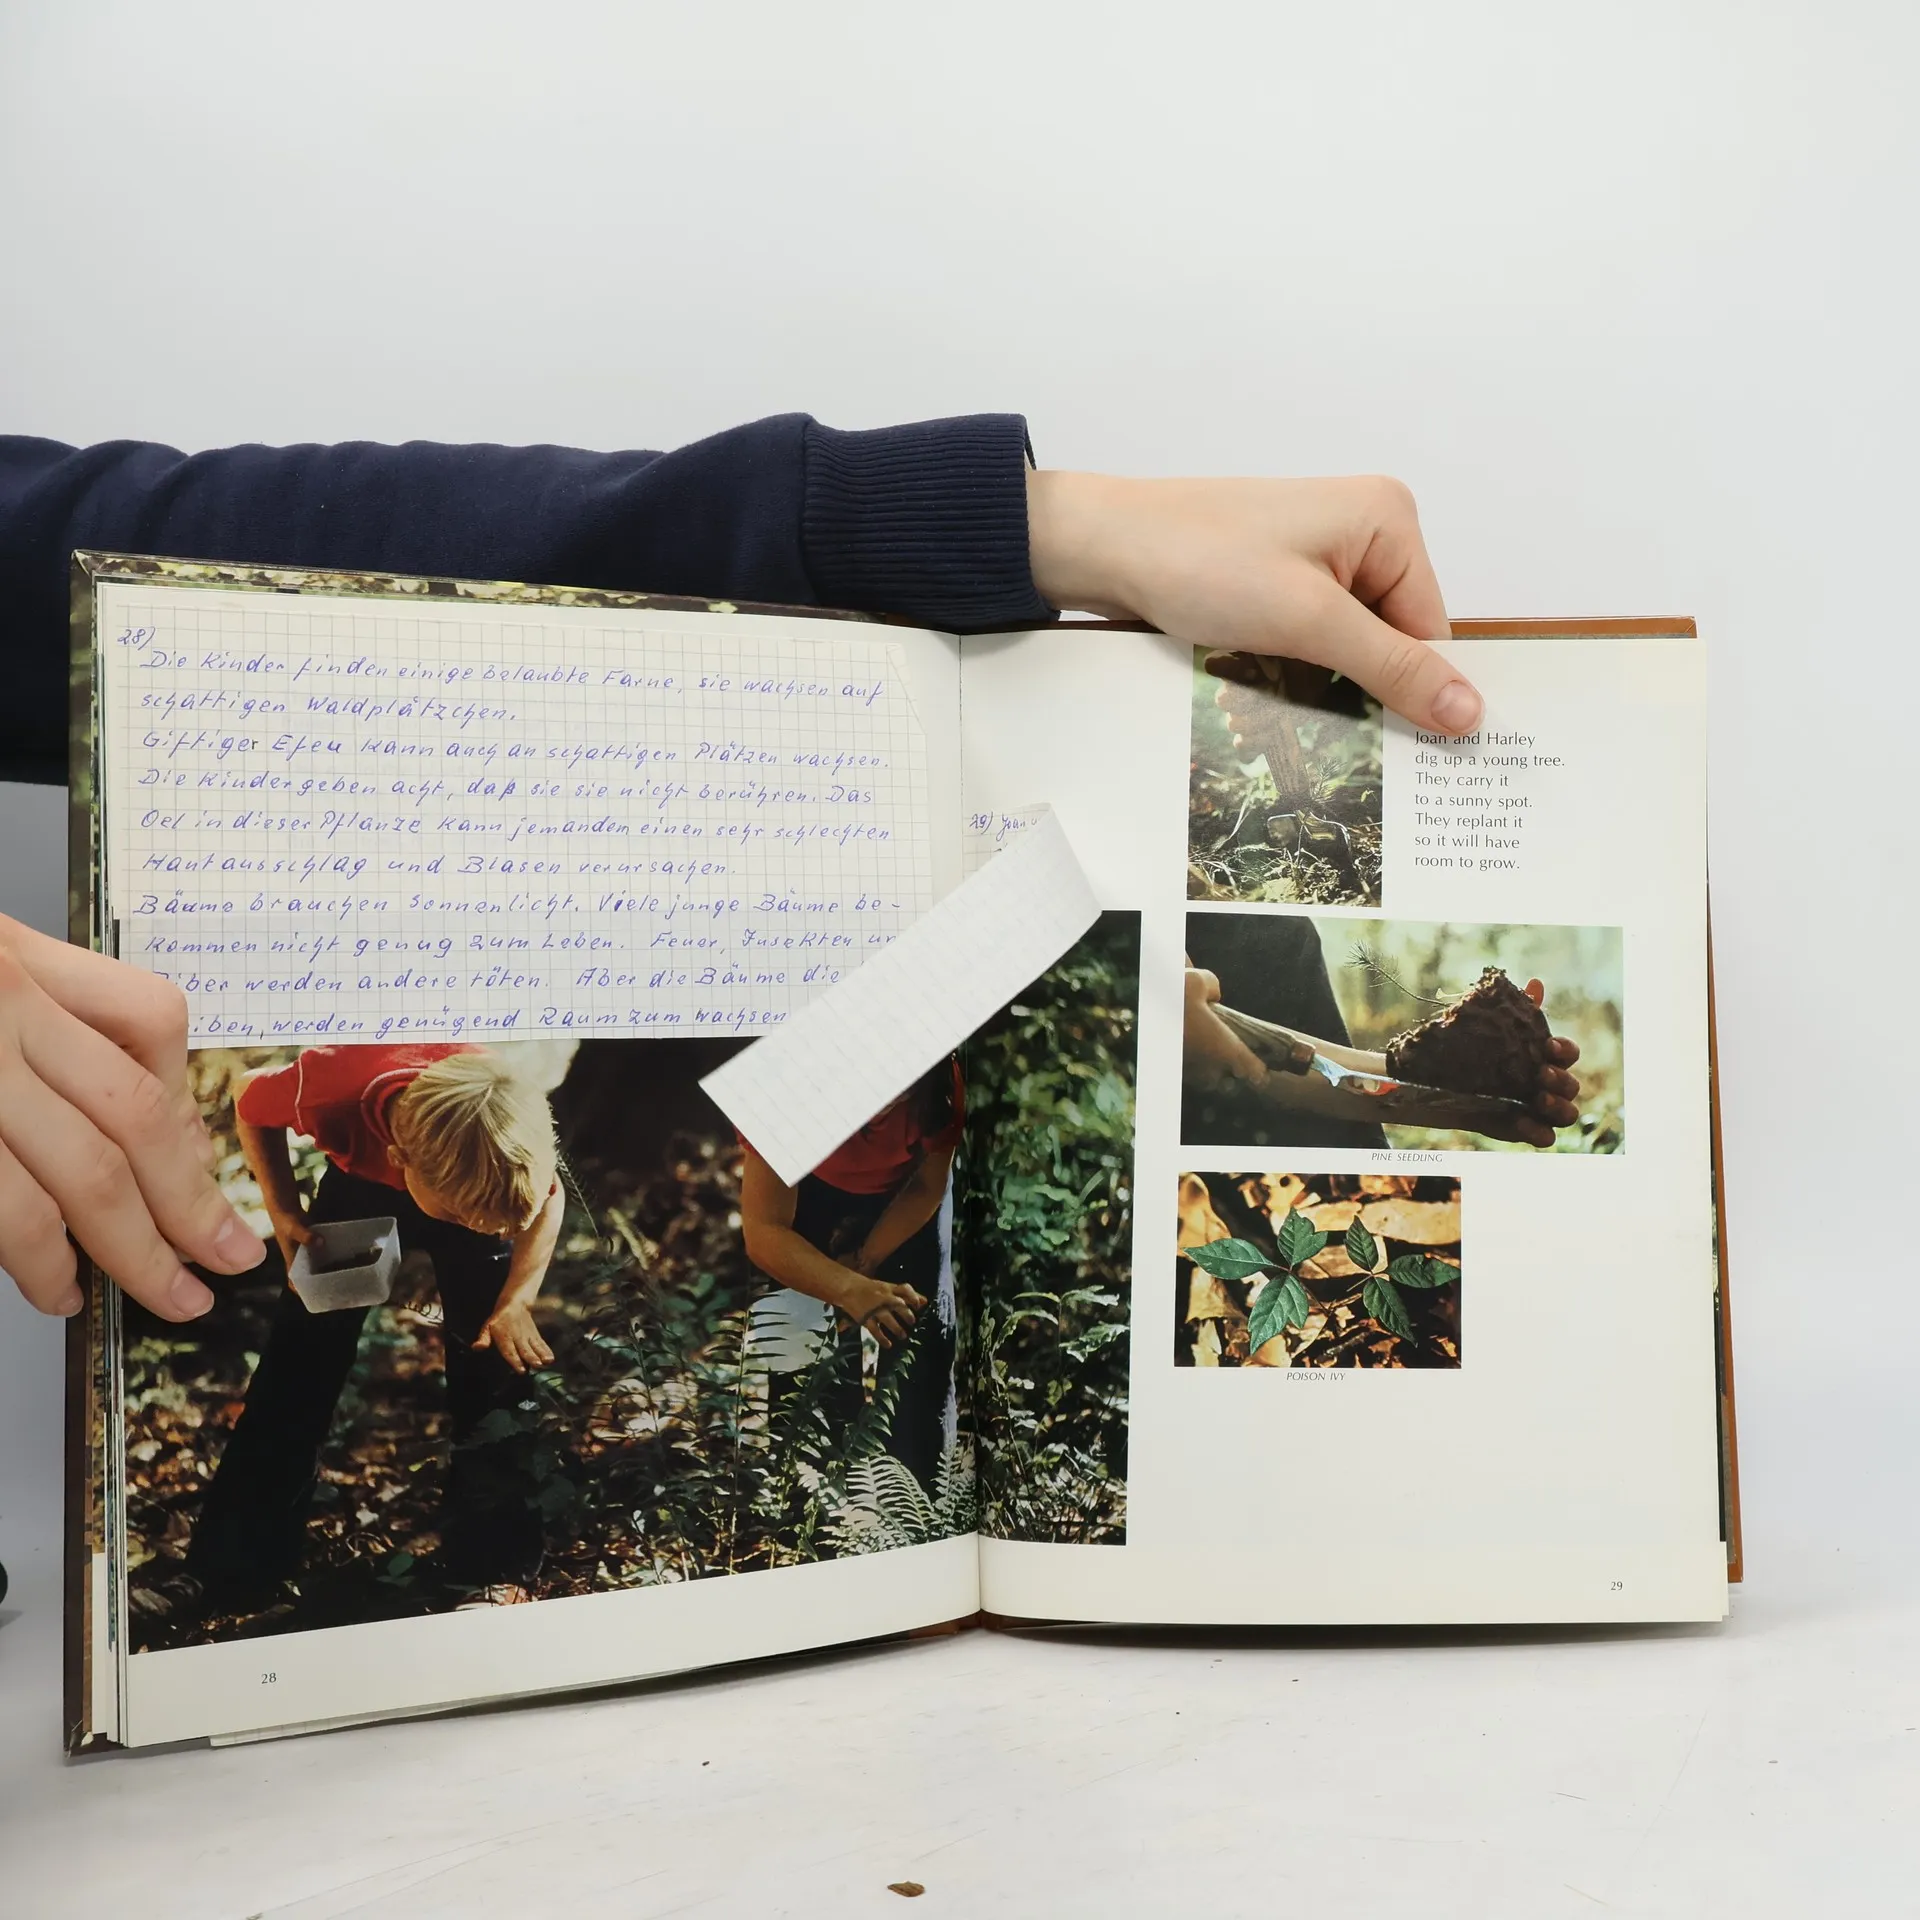 28)
Die Kinder finden einige belaubte Farne, sie wachsen auf
schattigen Waldplätzchen.
Giftiger Efeu kann auch an schattigen Plätzen wachsen.
Die Kinder geben acht, daß sie sie nicht berühren. Das
Oel in dieser Pflanze kann jemandem einen sehr schlechten
Hautausschlag und Blasen verursachen.
Bäume brauchen Sonnenlicht. Viele junge Bäume be-
kommen nicht genug zum Leben. Feuer, Insekten
werden andere töten. Aber die Bäume die
werden genügend Raum zum wachsen
28
29) Joan
Joan and Harley
dig up a young tree.
They carry it
to a sunny spot.
They replant it
so it will have
room to grow.
PINE SEEDLING
POISON IVY
29